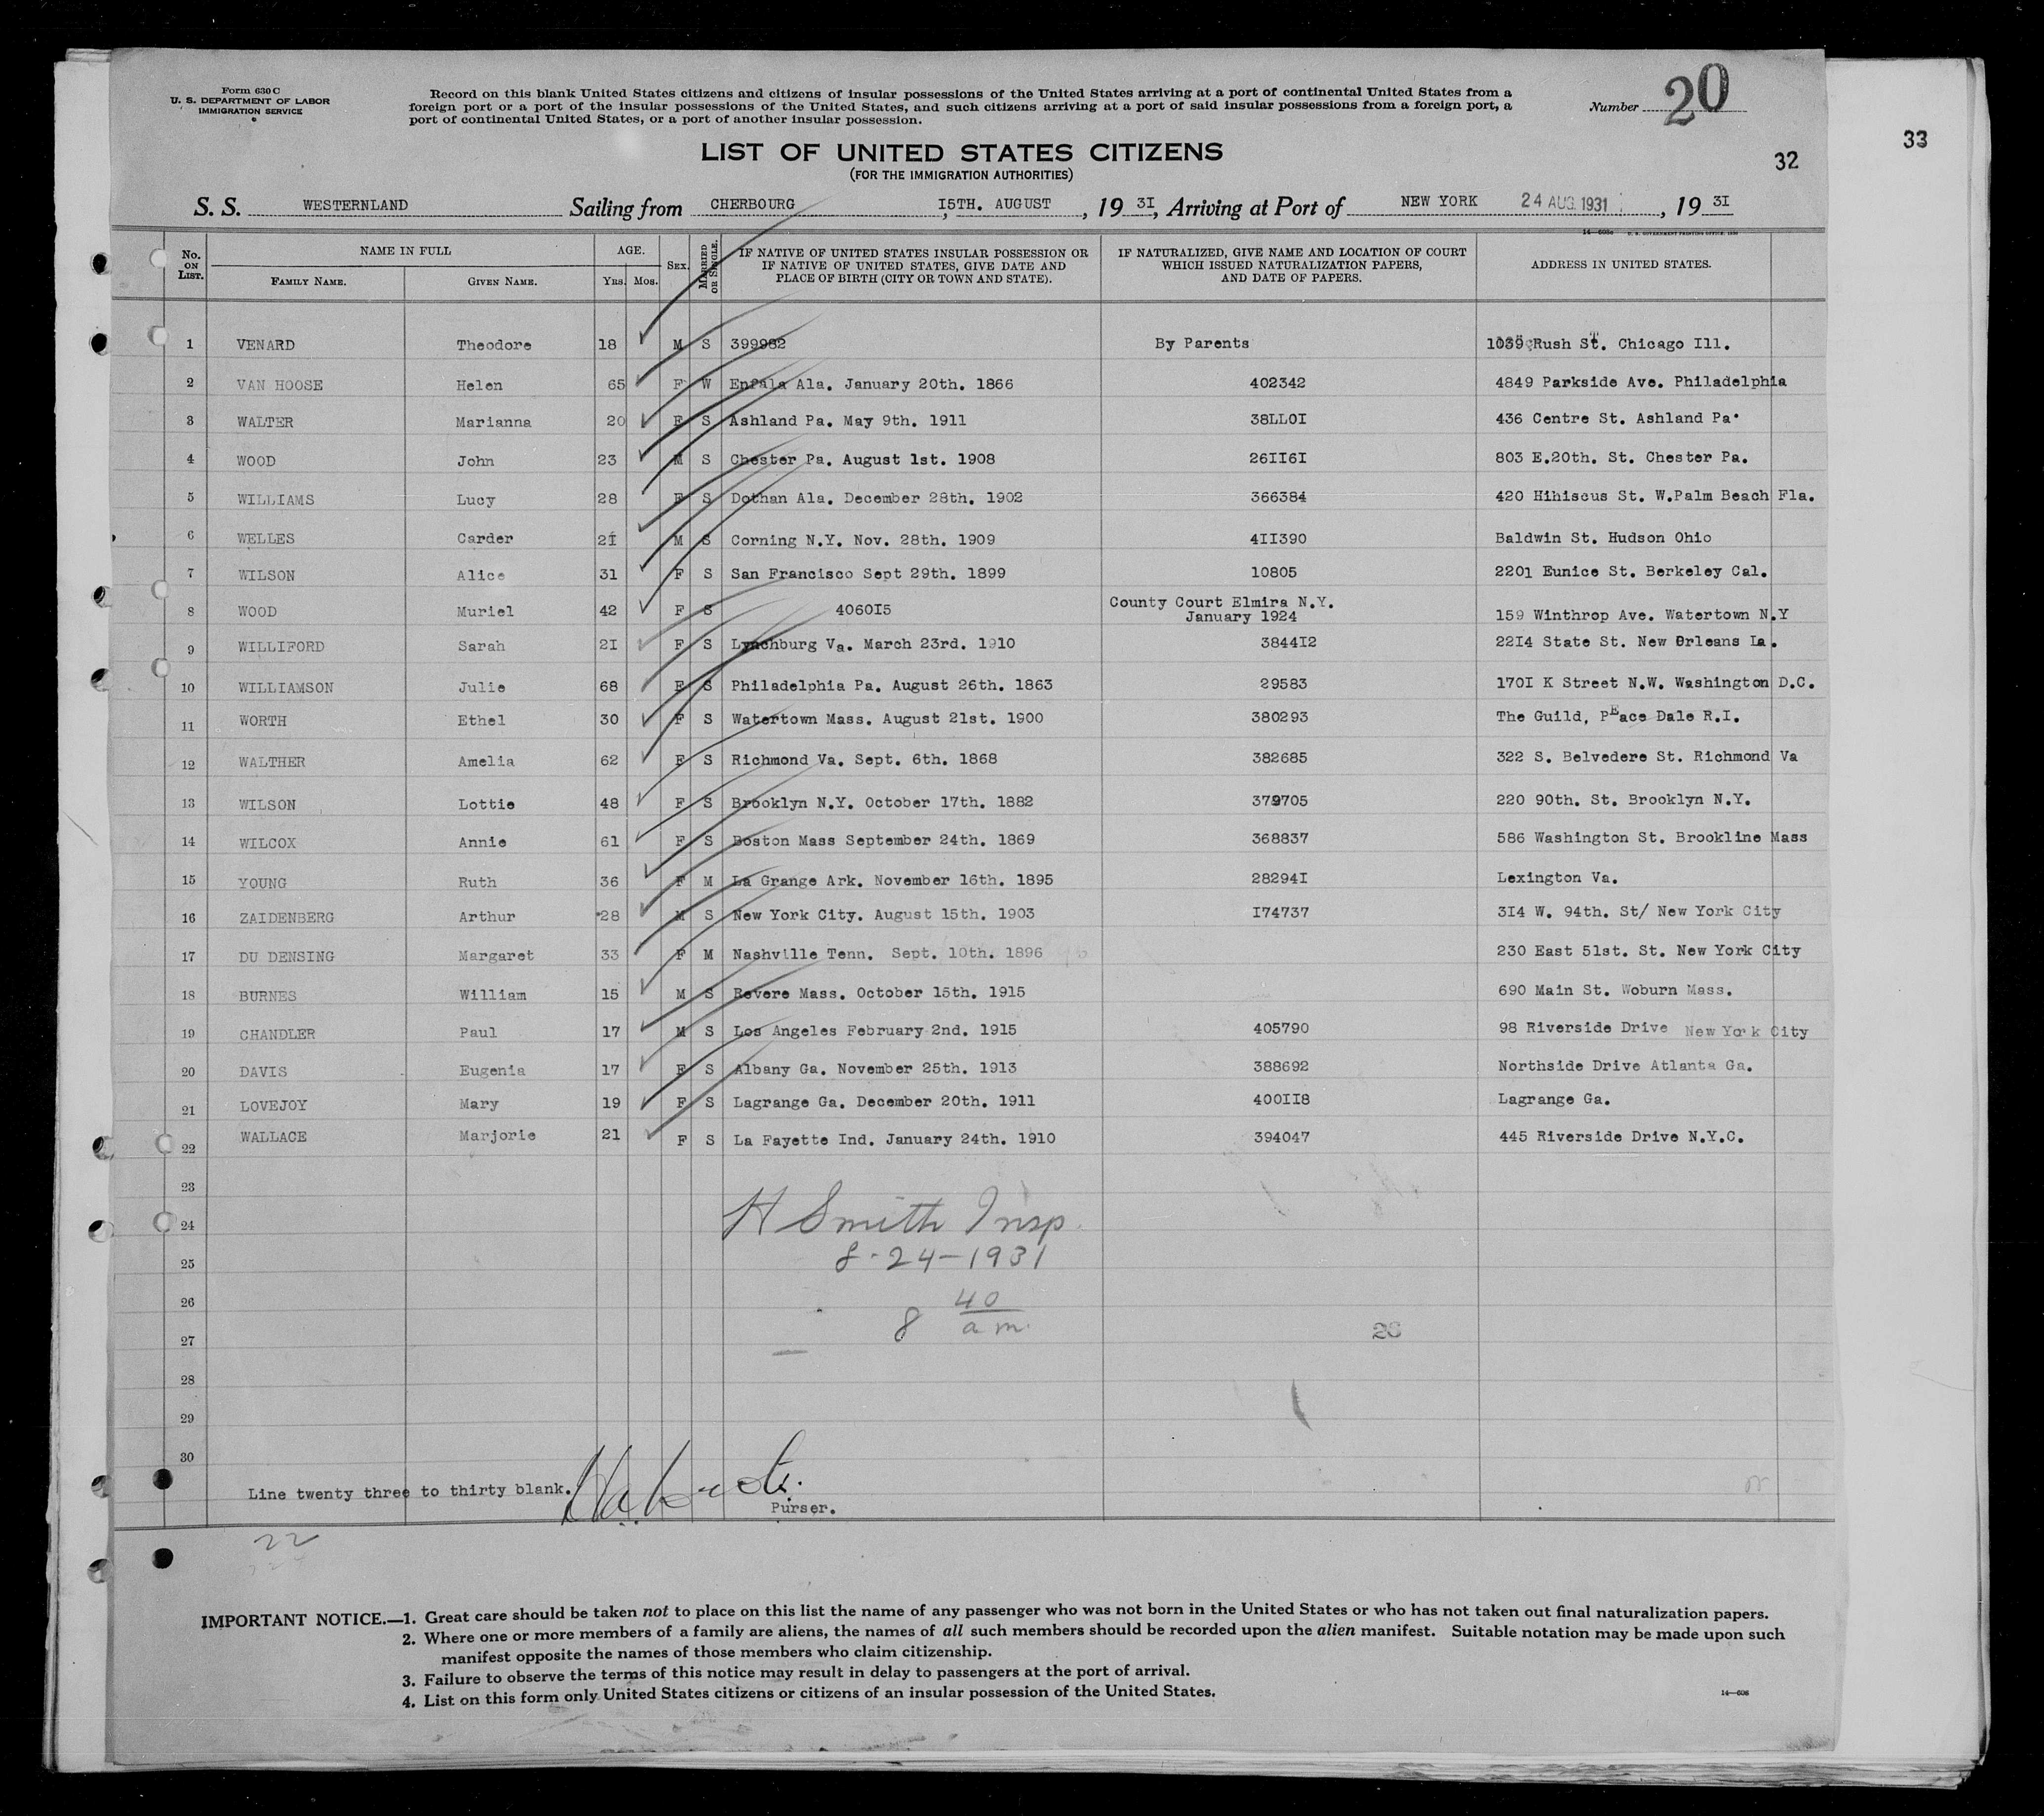 Form 630 C
U. S. DEPARTMENT OF LABOR
IMMIGRATION SERVICE
Record on this blank United States citizens and citizens of insular possessions of the United States arriving at a port of continental United States from a
foreign port or a port of the insular possessions of the United States, and such citizens arriving at a port of said insular possessions from a foreign port, a
port of continental United States, or a port of another insular possession.
Number 20
33
LIST OF UNITED STATES CITIZENS
32
(FOR THE IMMIGRATION AUTHORITIES)
S. S. WESTERNLAND Sailing from CHERBOURG, I5TH. AUGUST, 19 3I, Arriving at Port of NEW YORK 24 AUG. 1931, 19 3I
No. ON LIST. NAME IN FULL AGE. SEX. MARRIED OR SINGLE. IF NATIVE OF UNITED STATES INSULAR POSSESSION OR IF NATIVE OF UNITED STATES, GIVE DATE AND PLACE OF BIRTH (CITY OR TOWN AND STATE). IF NATURALIZED, GIVE NAME AND LOCATION OF COURT WHICH ISSUED NATURALIZATION PAPERS, AND DATE OF PAPERS. ADDRESS IN UNITED STATES.
FAMILY NAME. GIVEN NAME. YRS. MOS.
1 VENARD Theodore 18 M S 399982 By Parents 1039 Rush St. Chicago Ill.
2 VAN HOOSE Helen 65 F W Enfala Ala. January 20th. 1866 402342 4849 Parkside Ave. Philadelphia
3 WALTER Marianna 20 F S Ashland Pa. May 9th. 1911 38LL0I 436 Centre St. Ashland Pa.
4 WOOD John 23 M S Chester Pa. August 1st. 1908 26II6I 803 E.20th. St. Chester Pa.
5 WILLIAMS Lucy 28 F S Dothan Ala. December 28th. 1902 366384 420 Hihiscus St. W.Palm Beach Fla.
6 WELLES Carder 2I M S Corning N.Y. Nov. 28th. 1909 4II390 Baldwin St. Hudson Ohio
7 WILSON Alice 31 F S San Francisco Sept 29th. 1899 10805 2201 Eunice St. Berkeley Cal.
8 WOOD Muriel 42 F S 4060I5 County Court Elmira N.Y. January 1924 159 Winthrop Ave. Watertown N.Y
9 WILLIFORD Sarah 2I F S Lynchburg Va. March 23rd. 1910 3844I2 22I4 State St. New Orleans La.
10 WILLIAMSON Julie 68 F S Philadelphia Pa. August 26th. 1863 29583 170I K Street N.W. Washington D.C.
11 WORTH Ethel 30 F S Watertown Mass. August 21st. 1900 380293 The Guild, PEace Dale R.I.
12 WALTHER Amelia 62 F S Richmond Va. Sept. 6th. 1868 382685 322 S. Belvedere St. Richmond Va
13 WILSON Lottie 48 F S Brooklyn N.Y. October 17th. 1882 379705 220 90th. St. Brooklyn N.Y.
14 WILCOX Annie 61 F S Boston Mass September 24th. 1869 368837 586 Washington St. Brookline Mass
15 YOUNG Ruth 36 F M La Grange Ark. November 16th. 1895 28294I Lexington Va.
16 ZAIDENBERG Arthur 28 M S New York City. August 15th. 1903 I74737 3I4 W. 94th. St/ New York City
17 DU DENSING Margaret 33 F M Nashville Tenn. Sept. 10th. 1896 230 East 51st. St. New York City
18 BURNES William 15 M S Revere Mass. October 15th. 1915 690 Main St. Woburn Mass.
19 CHANDLER Paul 17 M S Los Angeles February 2nd. 1915 405790 98 Riverside Drive New York City
20 DAVIS Eugenia 17 F S Albany Ga. November 25th. 1913 388692 Northside Drive Atlanta Ga.
21 LOVEJOY Mary 19 F S Lagrange Ga. December 20th. 1911 400II8 Lagrange Ga.
22 WALLACE Marjorie 21 F S La Fayette Ind. January 24th. 1910 394047 445 Riverside Drive N.Y.C.
23
24 H Smith Insp.
25 8-24-1931
26 8 40 a m.
27
28
29
30
Line twenty three to thirty blank.
Purser.
22
IMPORTANT NOTICE.—1. Great care should be taken not to place on this list the name of any passenger who was not born in the United States or who has not taken out final naturalization papers.
2. Where one or more members of a family are aliens, the names of all such members should be recorded upon the alien manifest. Suitable notation may be made upon such
manifest opposite the names of those members who claim citizenship.
3. Failure to observe the terms of this notice may result in delay to passengers at the port of arrival.
4. List on this form only United States citizens or citizens of an insular possession of the United States.
14—606